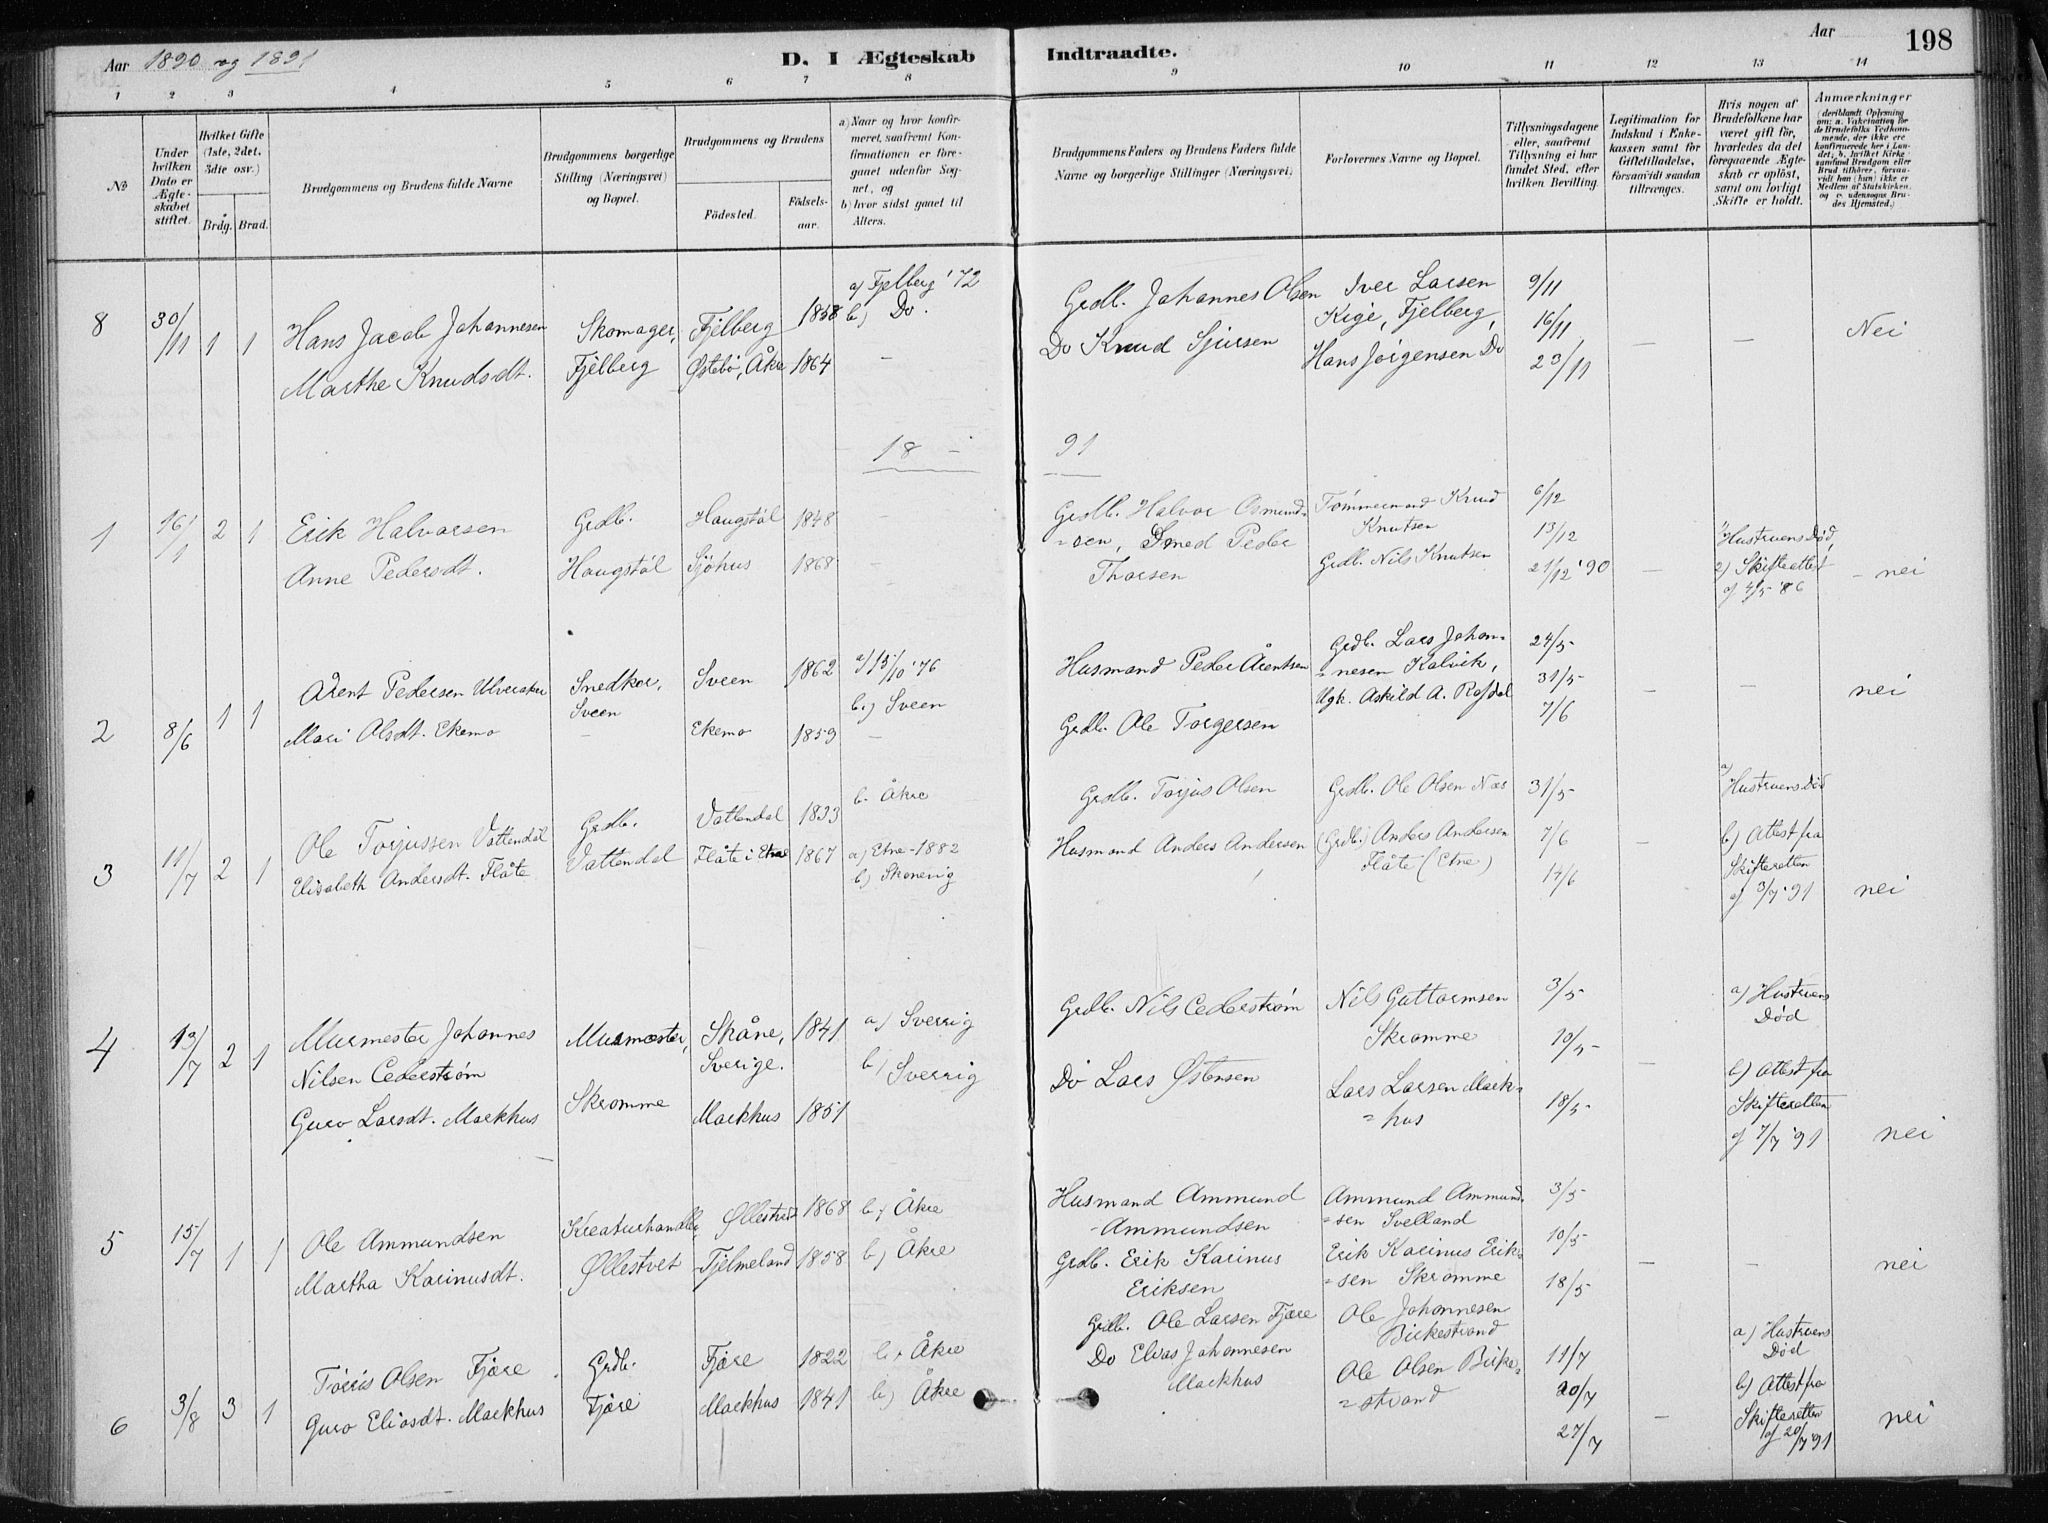 Aar 1890 og 1891
D. I Ægteskab Indtraadte.
Aar
198
1 2 3 4 5 6 7 8 9 10 11 12 13 14
No
Under hvilken Dato er Ægteskabet stiftet.
Hvilket Gifte (1ste, 2det, 3die osv.)
Brdg. Brud.
Brudgommens og Brudens fulde Navne
Brudgommens borgerlige Stilling (Næringsvei) og Bopæl.
Brudgommens og Brudens
Födested.
Födselsaar.
a) Naar og hvor konfirmeret, saafremt Konfirmationen er foregaaet udenfor Sognet, og
b) hvor sidst gaaet til Alters.
Brudgommens Faders og Brudens Faders fulde Navne og borgerlige Stillinger (Næringsvei).
Forlovernes Navne og Bopæl.
Tillysningsdagene eller, saafremt Tillysning ei har fundet Sted, efter hvilken Bevilling.
Legitimation for Indskud i Enkekassen samt for Giftetilladelse, forsaavidt saadan tiltrænges.
Hvis nogen af Brudefolkene har været gift för, hvorledes da det foregaaende Ægteskab er oplöst, samt om lovligt Skifte er holdt.
Anmærkninger
(deriblandt Oplysning om: a. Vakcination for de Brudefolks Vedkommende, der ikke ere konfirmerede her i Landet; b. hvilket Kirkesamfund Brudgom eller Brud tilhörer, forsaavidt han (hun) ikke er Medlem af Statskirken, og c. udensogns Brudes Hjemsted.)
8 30/11 1 1 Hans Jacob Johannesen Skomager, Fjelberg 1858 a) Fjelberg '72 b) Do. Grdb. Johannes Olsen Iver Larsen 9/11
Marthe Knudsdt. Fjelberg Østebö, Åkre 1864 — Do Knud Sjursen Kige, Fjelberg, 16/11 — — Nei
Hans Jörgensen Do 23/11
18 - 91
1 16/1 2 1 Erik Halvorsen Grdb. Haugstöl 1848 — Grdb. Halvor Osmund- Tömmermand Knud 6/12
Anne Pedersdt. Haugstöl Sjöhus 1868 — =sen, Smed Peder Knutsen 13/12 Hustruens Död,
Thorsen Grdb. Nils Knutsen 21/12 '90 — 2) Skifteattest - nei
af 4/5 '86
2 8/6 1 1 Arent Pedersen Ulveraker Snedker, Sveen 1862 a) 15/10 '76 Husmand Peder Arentsen Grdb. Lars Johan- 24/5
Sveen b.) Sveen =nesen Kalvik, 31/5 — — nei
Mari Olsdt. Ekemo — Ekemo 1859 — Grdb. Ole Torgersen Ugk. Askild A. Rafdal 7/6
3 11/7 2 1 Ole Torjussen Vattendal Grdb. Vattendal 1833 b. Åkre Grdb. Torjus Olsen Grdb. Ole Olsen Næs 31/5 a) Hustruens Död
Elisabeth Andersdt. Flåte Vattendal Flåte i Etne 1867 a) Etne-1882 Husmand Anders Andersen (Grdb.) Anders Andersen 7/6 — b) Attest fra
b) Skonevig Flåte (Etne) 14/6 Skifteretten
af 3/7 '91 nei
4 13/7 2 1 Murmester Johannes Murmester, Skåne, 1841 a) Sverrig Grdb. Nils Cederström Nils Guttormsen 3/5 a) Hustruens
Nilsen Cederström Sverige. b) Sverrig Skromme 10/5 Död
Do Lars Østensen Lars Larsen Mack- — b) Attest fra
Guro Larsdt. Mackhus Skromme Mackhus 1851 =hus 18/5 Skifteretten
af 7/7 '91 nei
5 15/7 1 1 Ole Ammundsen Kreaturhandler, Øllestvet 1868 b, Åkre Husmand Ammund Ammund Ammund- 3/5
-Ammundsen =sen Svelland
Martha Karinusdt. Øllestvet Fjelmeland 1858 b) Åkre Grdb. Erik Karinus Erik Karinus Erik- 10/5 — — nei
Eriksen =sen Skromme 18/5
6 3/8 3 1 Törris Olsen Fjære Grdb. Fjære 1822 b, Åkre Grdb. Ole Larsen Fjære Ole Johannesen Birkestrand 11/7 a) Hustruens Död
Guro Eliasdt. Mackhus Fjære Mackhus 1841 b) Åkre Do Elias Johannesen Ole Olsen Birke- 20/7 b) Attest fra
Mackhus =strand 27/7 — Skifteretten
af 20/7 '91 nei